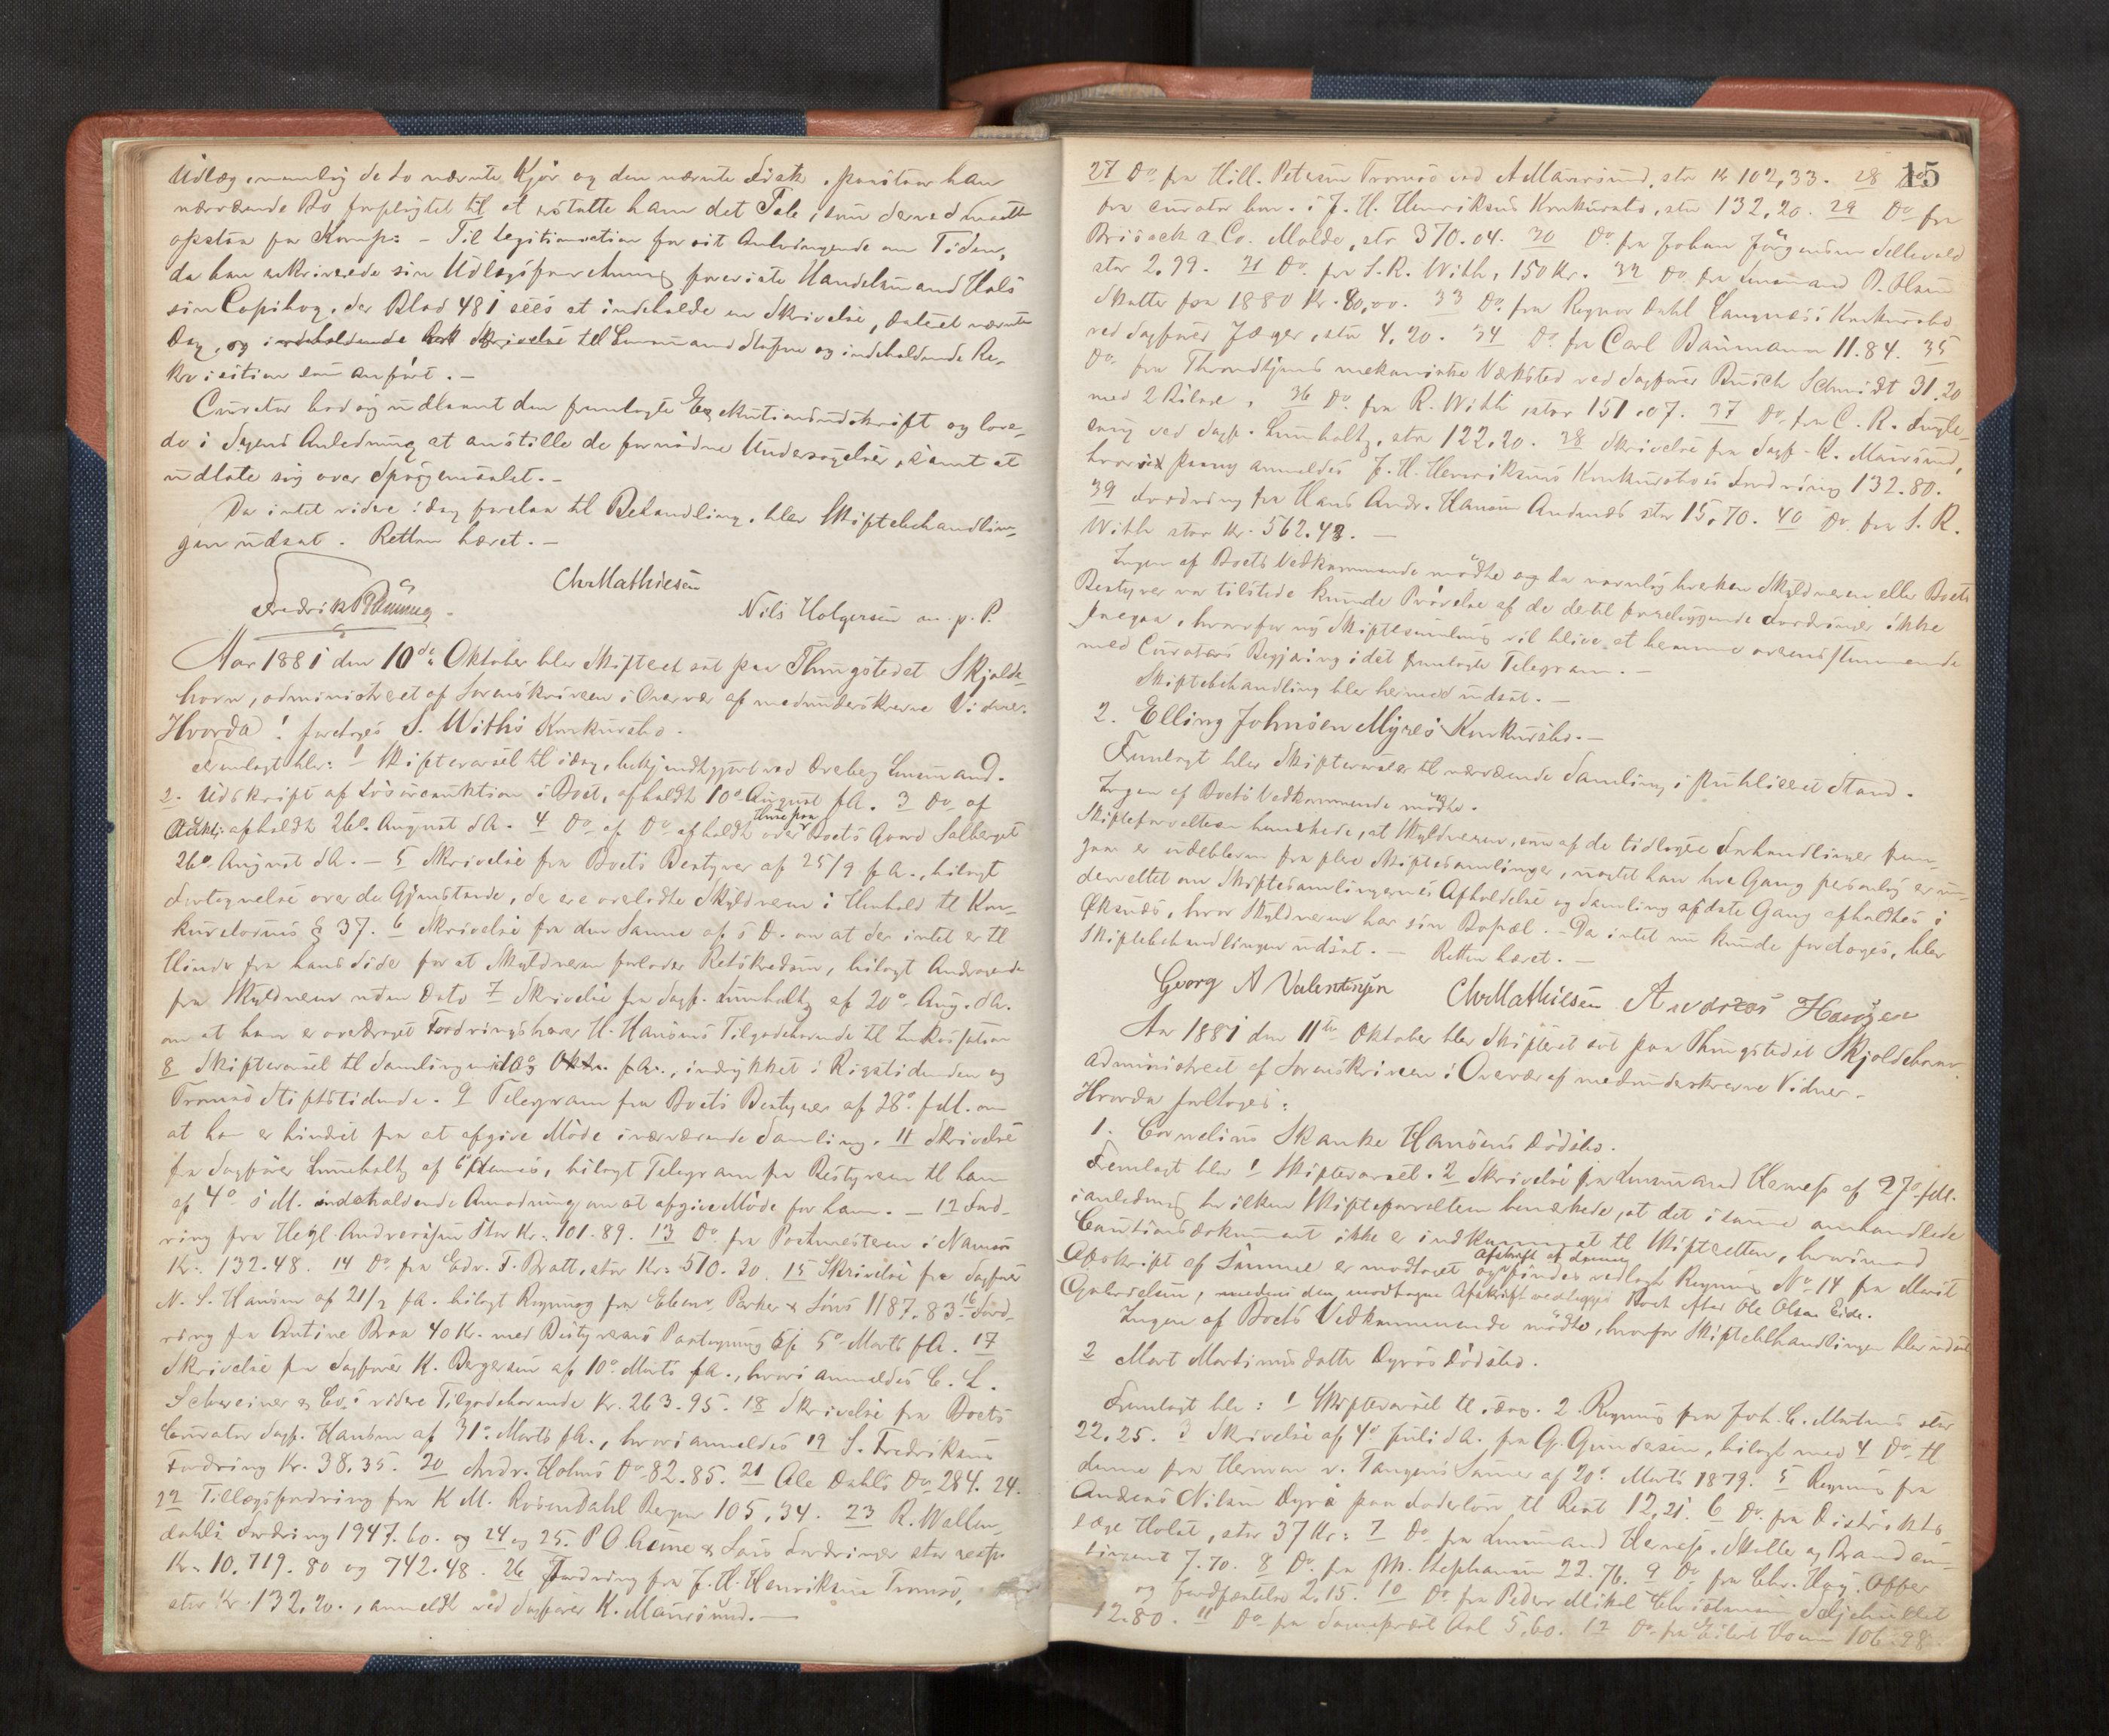 Udlæg, nemlig de to nævnte Kjør og den nævnte Fisk, paastaar han
nærværende Bo forpligtet til at erstatte ham det Tab, som derved maatte
opstaa for Komp: – Til Legitimation for sit Anbringende om Tiden,
da han rekvirerede sin Udlægsforretning foreviste Handelsmand Hals
sin Copibog, der Blad 481 sees at indeholde en Skrivelse, dateret nævnte
Dag, og indeholdende Skrivelse til Lensmand og indeholdende Re-
kvisition som anført. –
Curator bad sig udlaant den fremlagte Exekutionsudskrift og love-
de i Sagens Anledning at anstille de fornødne Undersøgelser, samt at
udtale sig over Spørgsmaalet. –
Da intet videre idag forelaa til Behandling, blev Skiftebehandlin-
gen udsat. Retten hævet. –
Chr Mathiesen
Fredrik
Nils Holgersen m. p. P.
Aar 1881 den 10de Oktober blev Skifteret sat paa Thingstedet Skjolde-
havn, administreret af Sorenskriveren i Overvær af medunderskrevne Vidner.
Hvorda! foretoges S. Withs Konkursbo.
Fremlagt blev: 1 Skiftevarsel til idag, bekjendtgjort ved Dverberg Lensmand.
2. Udskrift af Løsøreauktion i Boet, afholdt 10de August f.A. 3 Do af
Aukt: afholdt 26de August d.A. 4 Do af Do afholdt over Boets Gaard
26de August d.A. – 5 Skrivelse fra Boets Bestyrer af 25/9 f.A., bilagt
Fortegnelse over de Gjenstande, der ere overladte Skyldneren i Henhold til Kon-
kurslovens § 37. 6 Skrivelse fra den Samme af s. D. om at der intet er til
Hinder fra hans Side for at Skyldneren forlader Retskredsen, bilagt Andragende
fra Skyldneren uden Dato 7 Skrivelse fra Sagf. Lumholtz af 20de Aug. d.A.
om at ham er overdraget Fordringshaver H. Hansens Tilgodehavende til Inkassation
8 Skiftevarsel til Samlingen idag f.A., indrykket i Rigstidenden og
Tromsø Stiftstidende. 9 Telegram fra Boets Bestyrer af 28de f.M. om
at han er hindret fra at afgive Møde i nærværende Samling. 11 Skrivelse
fra Sagfører Lumholtz af 6te dennes, bilagt Telegram fra Bestyreren til ham
af 4de s. M. indeholdende Anmodning om at afgive Møde for ham. – 12 Ford-
ring fra Andreassen stor Kr. 101.89. 13 Do fra Postmesteren i Namsos
Kr. 132.48. 14 Do fra Edv. F. Bratt, stor Kr. 510.30. 15 Skrivelse fra Sagfører
N. S. Hansen af 21/2 f.A. bilagt Regning fra Ebenr. Parker & Søns 1187.83. 16 Ford-
ring fra Antine Braa 40 Kr. med Bestyrerens Paategning af 5te Marts f.A. 17
Skrivelse fra Sagfører K. Bergersen af 10de Marts f.A., hvori anmeldes C. L.
Schreiner & Co.s videre Tilgodehavende Kr. 263.95. 18 Skrivelse fra Boets
Curator Sagf. Hansen af 31te Marts f.A., hvori anmeldes 19 S. Fredriksens
Fordring Kr. 38.35. 20 Andr. Holms Do 82.85. 21 Ole Dahls Do 284.24.
22 Tillægsfordring fra K. M. Rosendahl Bergen 105,34. 23 R. Wallen-
dahls Fordring 1947.60. og 24 og 25. P. O. & Søns Fordringer stor resp.
Kr. 10.719.80 og 742.48. 26 Fordring fra J. H. Henriksen Tromsø,
stor Kr. 132,20., anmeldt ved Sagfører K. Maursund. –
15
27 Do fra Hill. Petersen Tromsø ved A Maursund, stor Kr 102,33. 28 Do
fra Curator bon. i J. H. Henriksens Konkursbo, stor 132,20. 29 Do fra
Brisack & Co. Molde, stor 370.04. 30 Do fra Johan Jørgensen Sellevold
stor 2.99. 31 Do fra S. R. With, 150 Kr. 32 Do fra Lensmand B. Olsen
Skatter for 1880 Kr. 80,00. 33 Do fra Ragnar Dahl Langnæs's Konkursbo
ved Sagfører Jæger, stor 4.20. 34 Do fra Carl Baumann 11.84. 35
Do fra Throndhjems mekaniske Værksted ved Sagfører Busch Schmidt 31,20
med 2 Bilage, 36 Do fra R. With, stor 151.07. 37 Do fra C. R. Engle-
ung ved Sagf. Lumholtz, stor 122,20. 38 Skrivelse fra Sagf. K. Maursund,
hvori paany anmeldes J. H. Henriksens Konkursbo's Fordring 132.80.
39 Fordring fra Hans Andr. Hansen Andenæs stor 15,70. 40 Do fra S. R.
With stor Kr. 562.43. –
Ingen af Boets Vedkommende mødte og da navnlig hverken Skyldneren eller Boets
Bestyrer var tilstede kunde Prøvelse af de dertil foreliggende Fordringer ikke
foregaa, hvorfor ny Skiftesamling vil blive at beramme overensstemmende
med Curators Begjæring i det fremlagte Telegram. –
Skiftebehandling blev hermed udsat. –
2. Elling Johnsen Myres Konkursbo. –
Fremlagt blev Skiftevarsler til nærværende Samling i publiceret Stand.
Ingen af Boets Vedkommende mødte.
Skifteforvalteren bemærkede, at Skyldneren, som af de tidligere Forhandlinger frem-
gaar er udebleven fra flere Skiftesamlinger, uagtet han hver Gang personlig er un-
derrettet om Skiftesamlingernes Afholdelse og Samling sidste Gang afholdtes i
Øksnes, hvor Skyldneren har sin Bopæl. – Da intet nu kunde foretages, blev
Skiftebehandlingen udsat. – Retten hævet. –
Georg A Valentinsen Chr Mathiesen Andreas Hansen
Aar 1881 den 11te Oktober blev Skifteret sat paa Thingstedet Skjoldehavn
administreret af Sorenskriveren i Overvær af medunderskrevne Vidner.
Hvorda foretoges:
1. Cornelius Skanke Hansens Dødsbo.
Fremlagt blev 1 Skiftevarsel. 2 Skrivelse fra Lensmand af 27de f.M.
i Anledning hvilken Skifteforvalteren bemærkede, at det i samme omhandlede
Cautionsdokument ikke er indkommet til Skifteretten, hvorimod
Afskrift af Samme er modtaget og Afskrift af denne findes vedlagt Regning No 14 fra Marit
Gabrielsen, medens den modtagne Afskrift vedlægges Boet efter Ole Olsen Eide.
Ingen af Boets Vedkommende mødte, hvorfor Skiftebehandlingen blev udsat
2 Mart Martinusdatter Dyrøs Dødsbo.
Fremlagt blev: 1 Skiftevarsel til idag. 2 Regning fra Joh. C. Martens stor
22,25. 3 Skrivelse af 4de Juli d.A. fra G. Gundersen, bilagt med 4 Do til
denne fra Herman v. Tangens Sønner af 20de Marts 1879. 5 Regning fra
Andreas Nilsen Dyrø paa Foderløn til Rest 12,21. 6 Do fra Distrikts-
læge Holst, stor 37 Kr: 7 Do fra Lensmand Skatter og Brandcon-
tingent 7.70. 8 Do fra M. Stephansen 22.76. 9 Do fra Chr. Høy. Offer
og Jordfæstelse 2,15. 10 Do fra Peder Mikal Christensen
12.80. 11 Do fra Sogneprest Aal 5,60. 12 Do fra 106.98